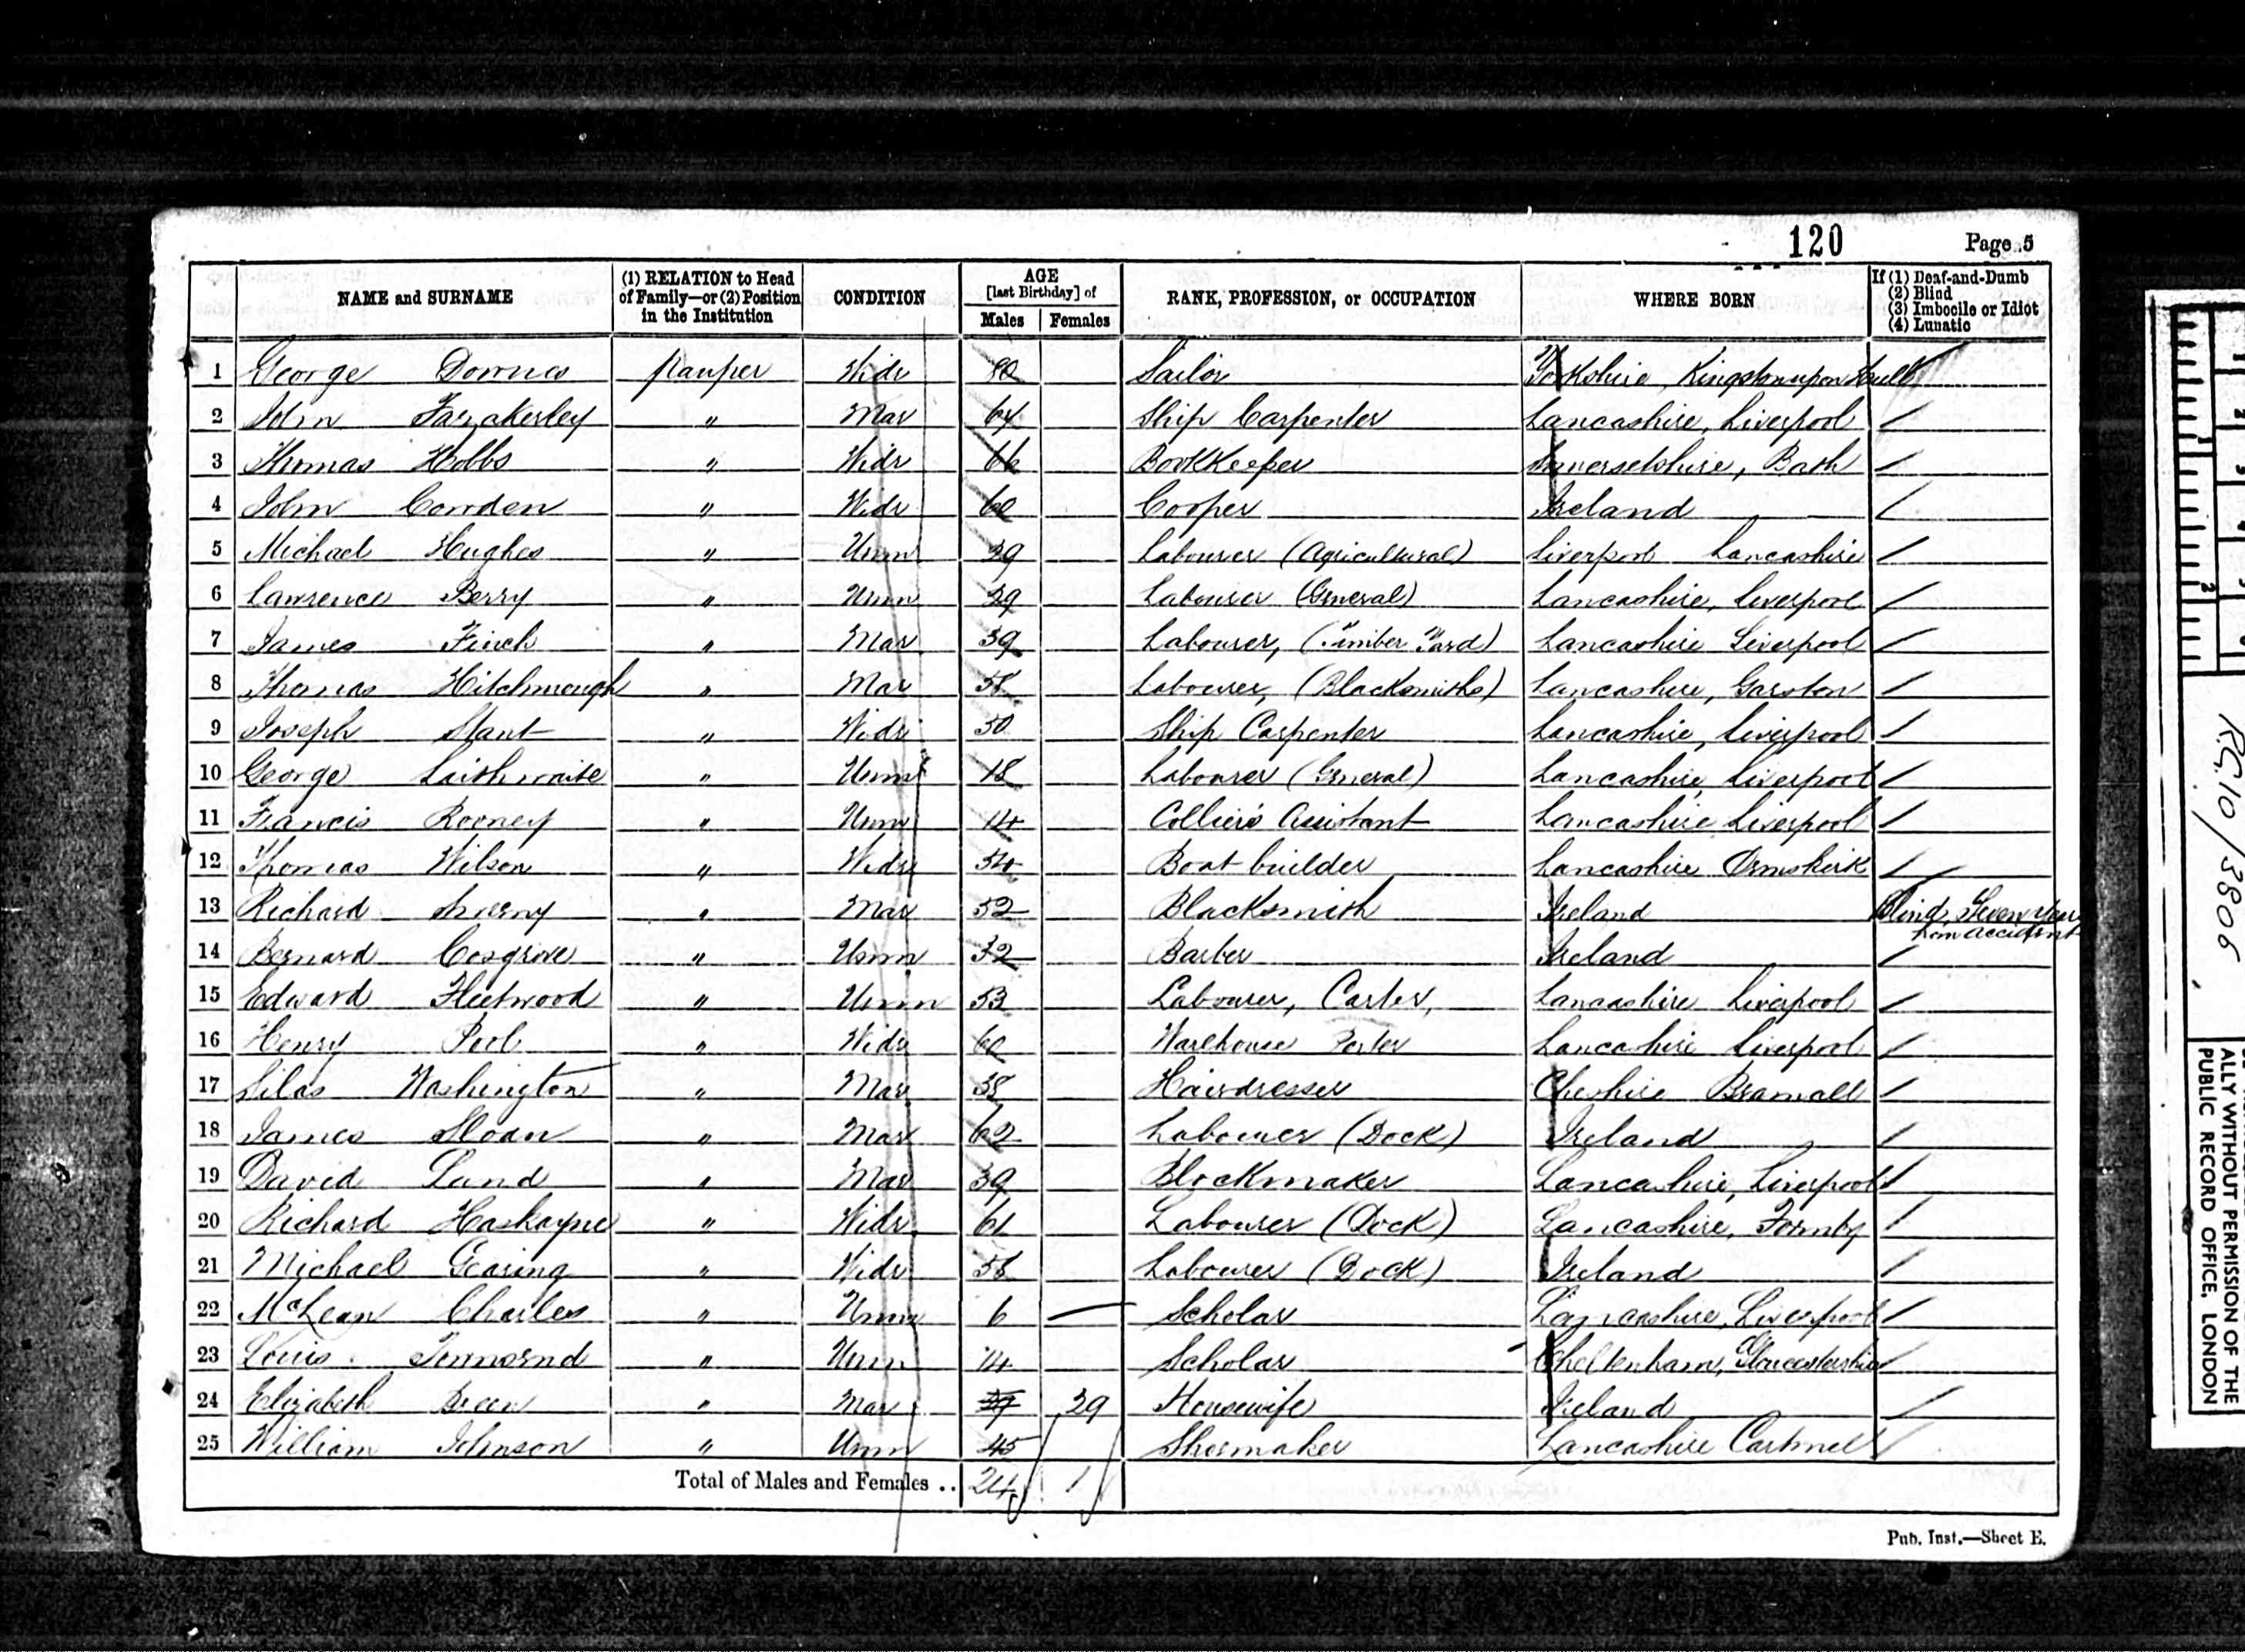 120 Page 5
NAME and SURNAME (1) RELATION to Head of Family—or (2) Position in the Institution CONDITION AGE [last Birthday] of Males Females RANK, PROFESSION, or OCCUPATION WHERE BORN If (1) Deaf-and-Dumb (2) Blind (3) Imbecile or Idiot (4) Lunatic
1 George Downes pauper Widr 80 Sailor Yorkshire, Kingstonupon Hull
2 John Fazakerley " Mar 64 Ship Carpenter Lancashire, Liverpool
3 Thomas Hobbs " Widr 66 BookKeeper Somersetshire, Bath
4 John Cowden " Widr 60 Cooper Ireland
5 Michael Hughes " Unm 29 Labourer (Agricultural) Liverpool Lancashire
6 Lawrence Berry " Unm 29 Labourer (General) Lancashire, Liverpool
7 James Finch " Mar 39 Labourer, (Timber Yard) Lancashire Liverpool
8 Thomas Hitchmough " Mar 58 Labourer, (Blacksmiths) Lancashire, Garston
9 Joseph Stant " Widr 50 Ship Carpenter Lancashire, Liverpool
10 George Laithwaite " Unm 18 Labourer (General) Lancashire, Liverpool
11 Francis Rooney " Unm 14 Collier's Assistant Lancashire Liverpool
12 Thomas Wilson " Widr 54 Boat builder Lancashire Ormskirk
13 Richard " Mar 52 Blacksmith Ireland Blind, Seven Years from accident
14 Bernard Cosgrove " Unm 32 Barber Ireland
15 Edward Fleetwood " Unm 53 Labourer, Carter, Lancashire Liverpool
16 Henry Pool " Widr 60 Warehouse Porter Lancashire Liverpool
17 Silas Washington " Mar 38 Hairdresser Cheshire Bramall
18 James Sloan " Mar 62 Labourer (Dock) Ireland
19 David Lund " Mar 39 Blockmaker Lancashire, Liverpool
20 Richard Haskayne " Widr 61 Labourer (Dock) Lancashire, Formby
21 Michael Gearing " Widr 58 Labourer (Dock) Ireland
22 McLean Charles " Unm 6 Scholar Lancashire, Liverpool
23 Louis " Unm 14 Scholar Cheltenham, Gloucestershire
24 Elizabeth Breen " Mar 29 29 Housewife Ireland
25 William Johnson " Unm 45 Shoemaker Lancashire Cartmell
Total of Males and Females .. 24 1
Pub. Inst.—Sheet E.
RG10/3806
ALLY WITHOUT PERMISSION OF THE
PUBLIC RECORD OFFICE, LONDON